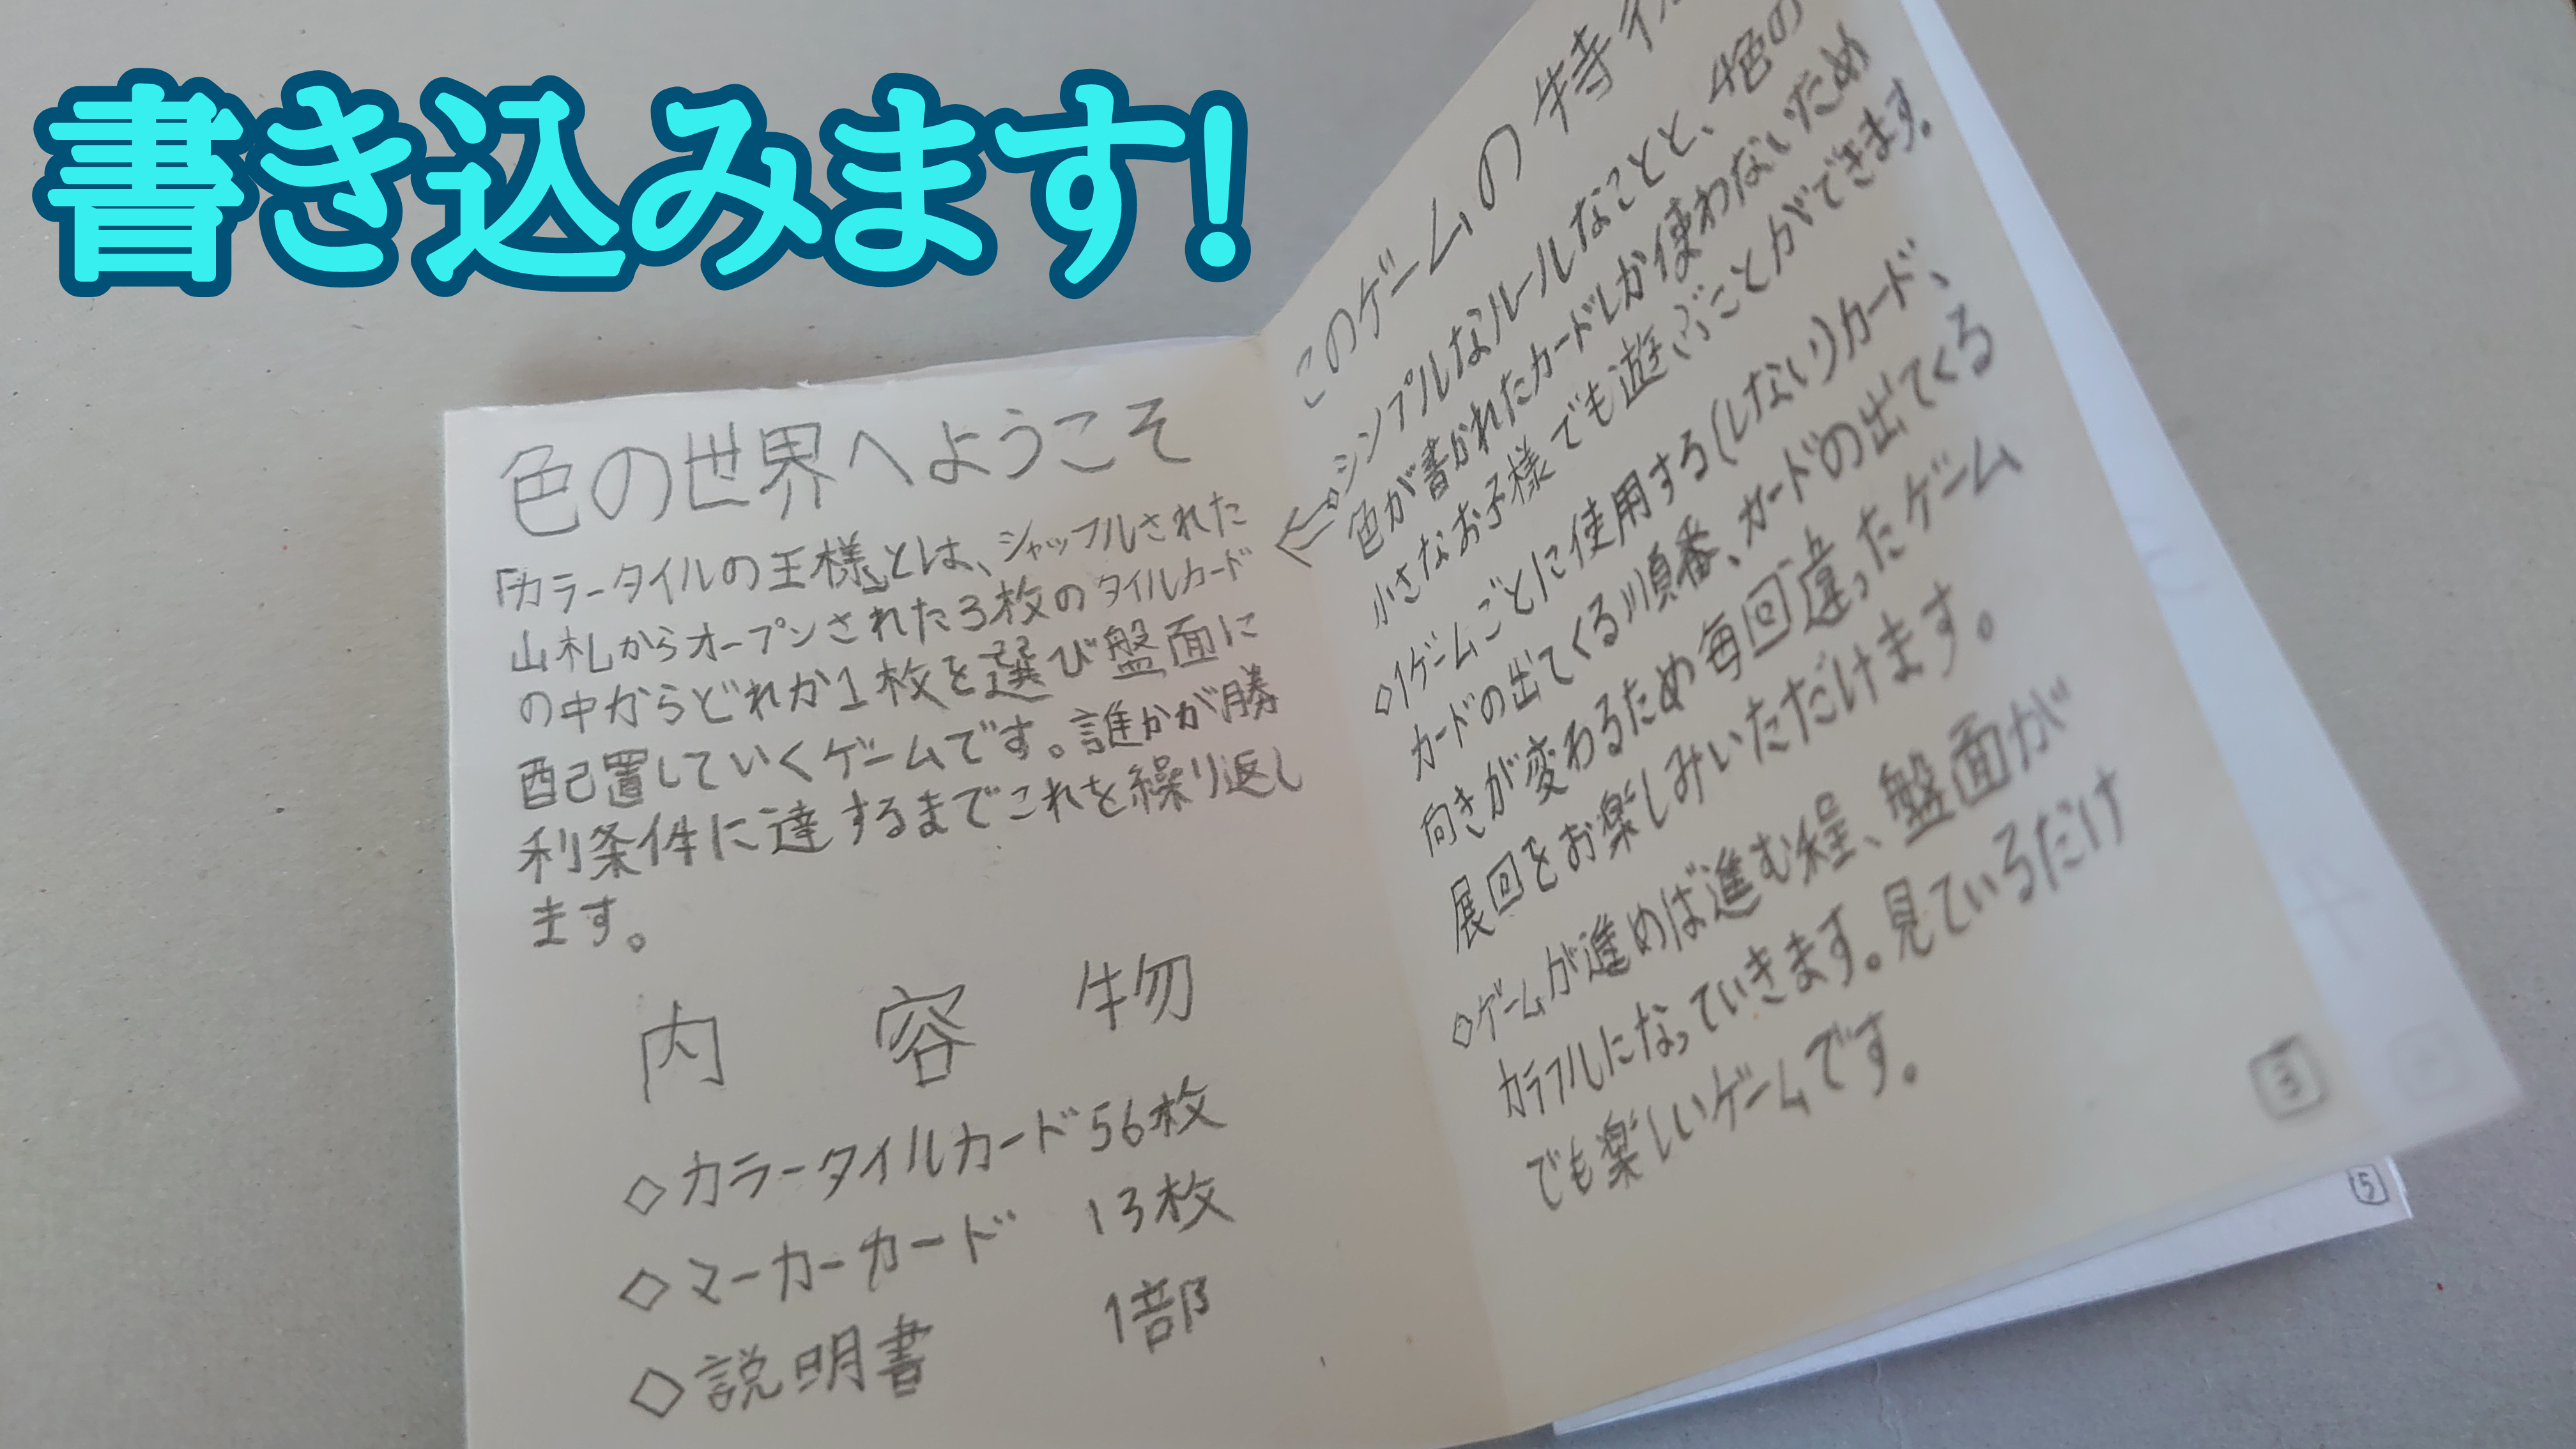 書き込みます!
色の世界へようこそ
「カラータイルの王様」とは、シャッフルされた
山札からオープンされた3枚のタイルカード
の中からどれか1枚を選び盤面に
配置していくゲームです。誰かが勝
利条件に達するまでこれを繰り返し
ます。
内 容 物
◇カラータイルカード56枚
◇マーカーカード 13枚
◇説明書 1部
このゲームの特
◇シンプルなルールなことと、4色の
色が書かれたカードしか使わないため
小さなお子様でも遊ぶことができます。
◇1ゲームごとに使用する(しない)カード、
カードの出てくる順番、カードの出てくる
向きが変わるため毎回違ったゲーム
展回をお楽しみいただけます。
◇ゲームが進めば進む程、盤面が
カラフルになっていきます。見ているだけ
でも楽しいゲームです。
3
5